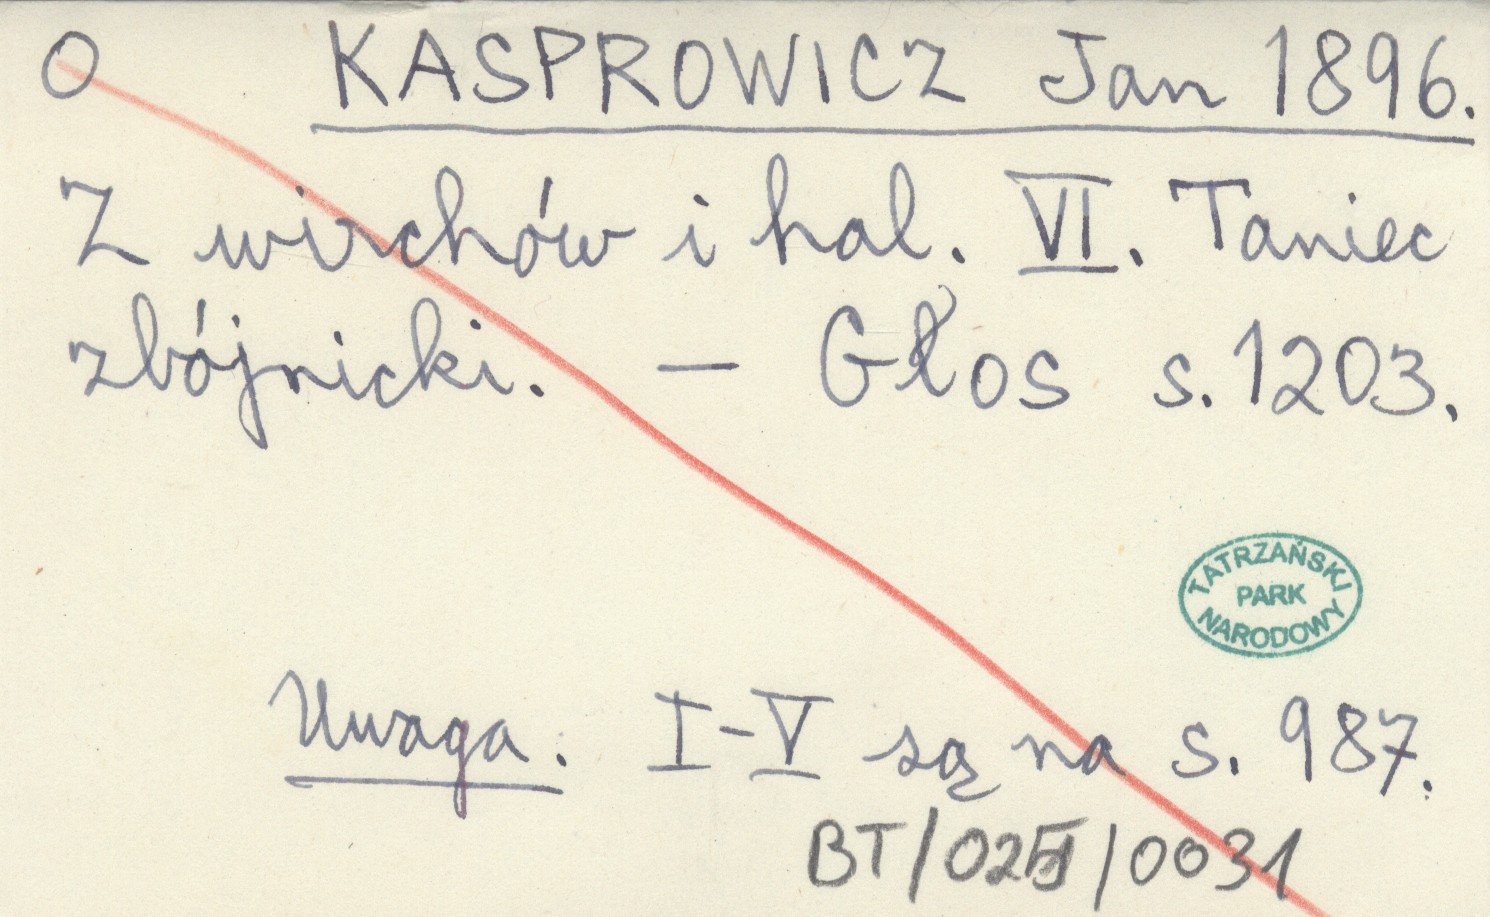 O KASPROWICZ Jan 1896.
Z wirchów i hal. VI. Taniec
zbójnicki. — Głos s. 1203.
TATRZAŃSKI
PARK
NARODOWY
Uwaga. I-V są na s. 987.